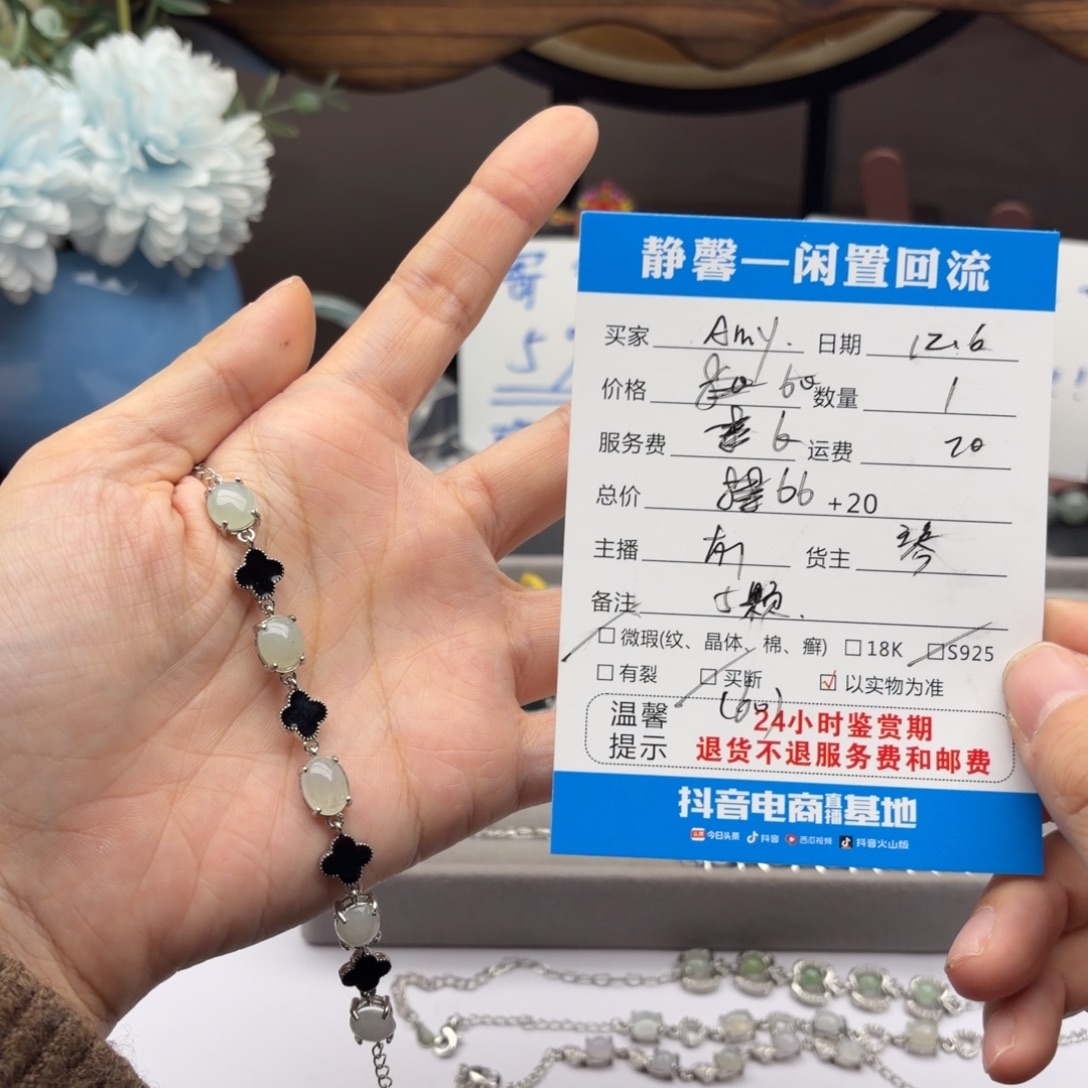 静馨—闲置回流
买家 Amy. 日期 12.6
价格 60 数量 1
服务费 6 运费 20
总价 66 +20
主播 货主 琴
备注 5颗.
□ 微瑕(纹、晶体、棉、癣) □ 18K □ S925
□ 有裂 □ 买断 ☑ 以实物为准
(60)
温馨提示 24小时鉴赏期
退货不退服务费和邮费
抖音电商直播基地
头条 今日头条 抖音 西瓜视频 抖音火山版
寄
5